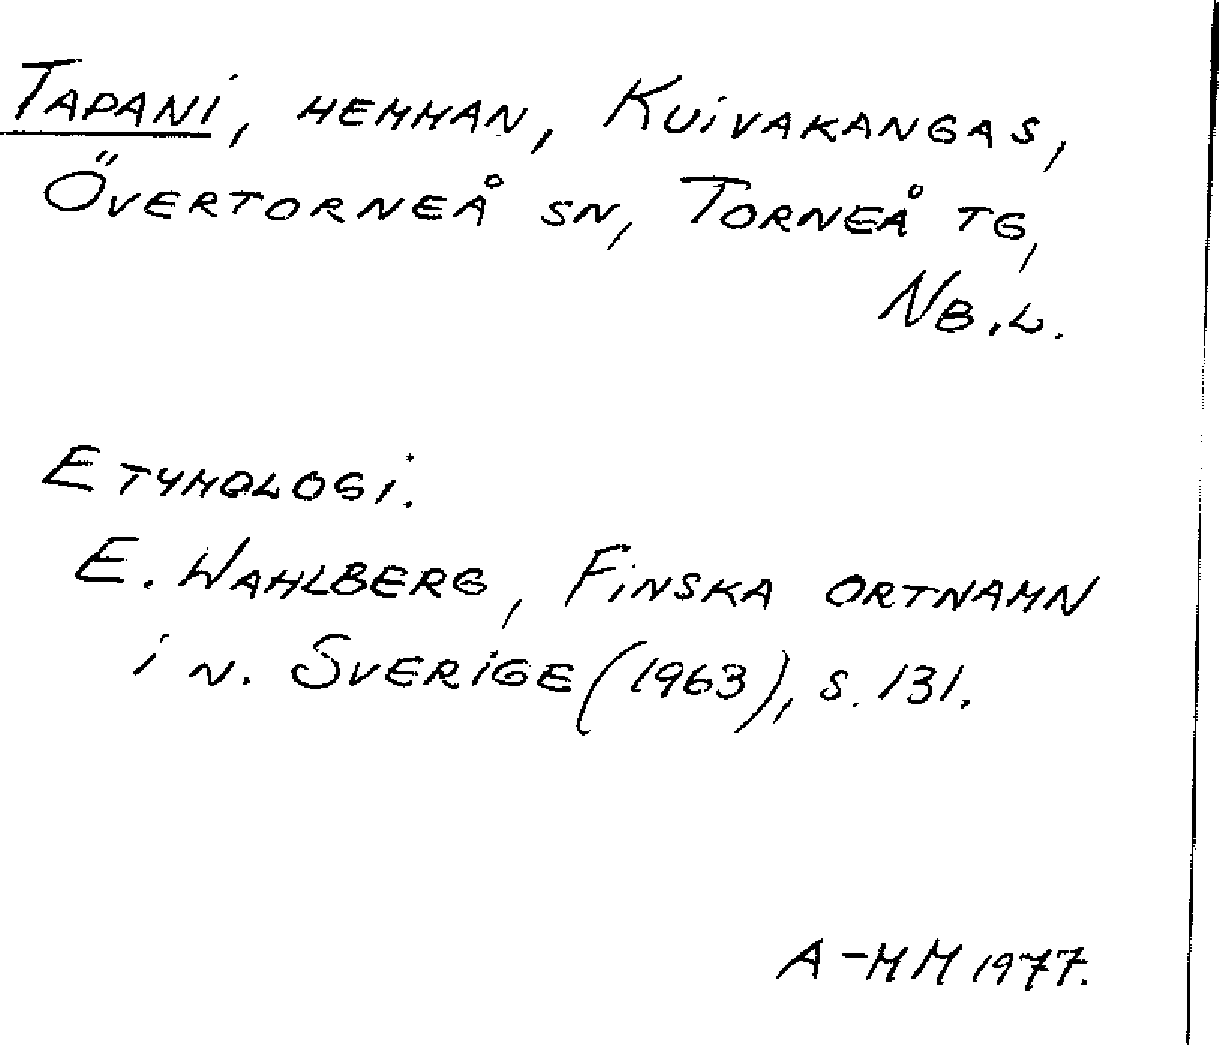 Tapani, hemman, Kuivakangas,
Övertorneå sn, Torneå tg,
Nb.l.
Etymologi.
E. Wahlberg, Finska ortnamn
i n. Sverige (1963), s. 131.
A-MM 1977.